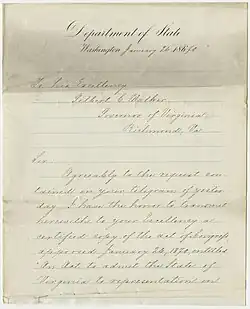 Department of State
Washington January 26 1870
To his Excellency
Gilbert C. Walker,
Governor of Virginia,
Richmond, Va
Sir
Agreeably to the request con-
tained in your telegram of yester
day I have the honor to transmit
herewith to your Excellency a
certified copy of the act of Congress
approved January 26, 1870, entitled
"An Act to admit the State of
Virginia to representation in